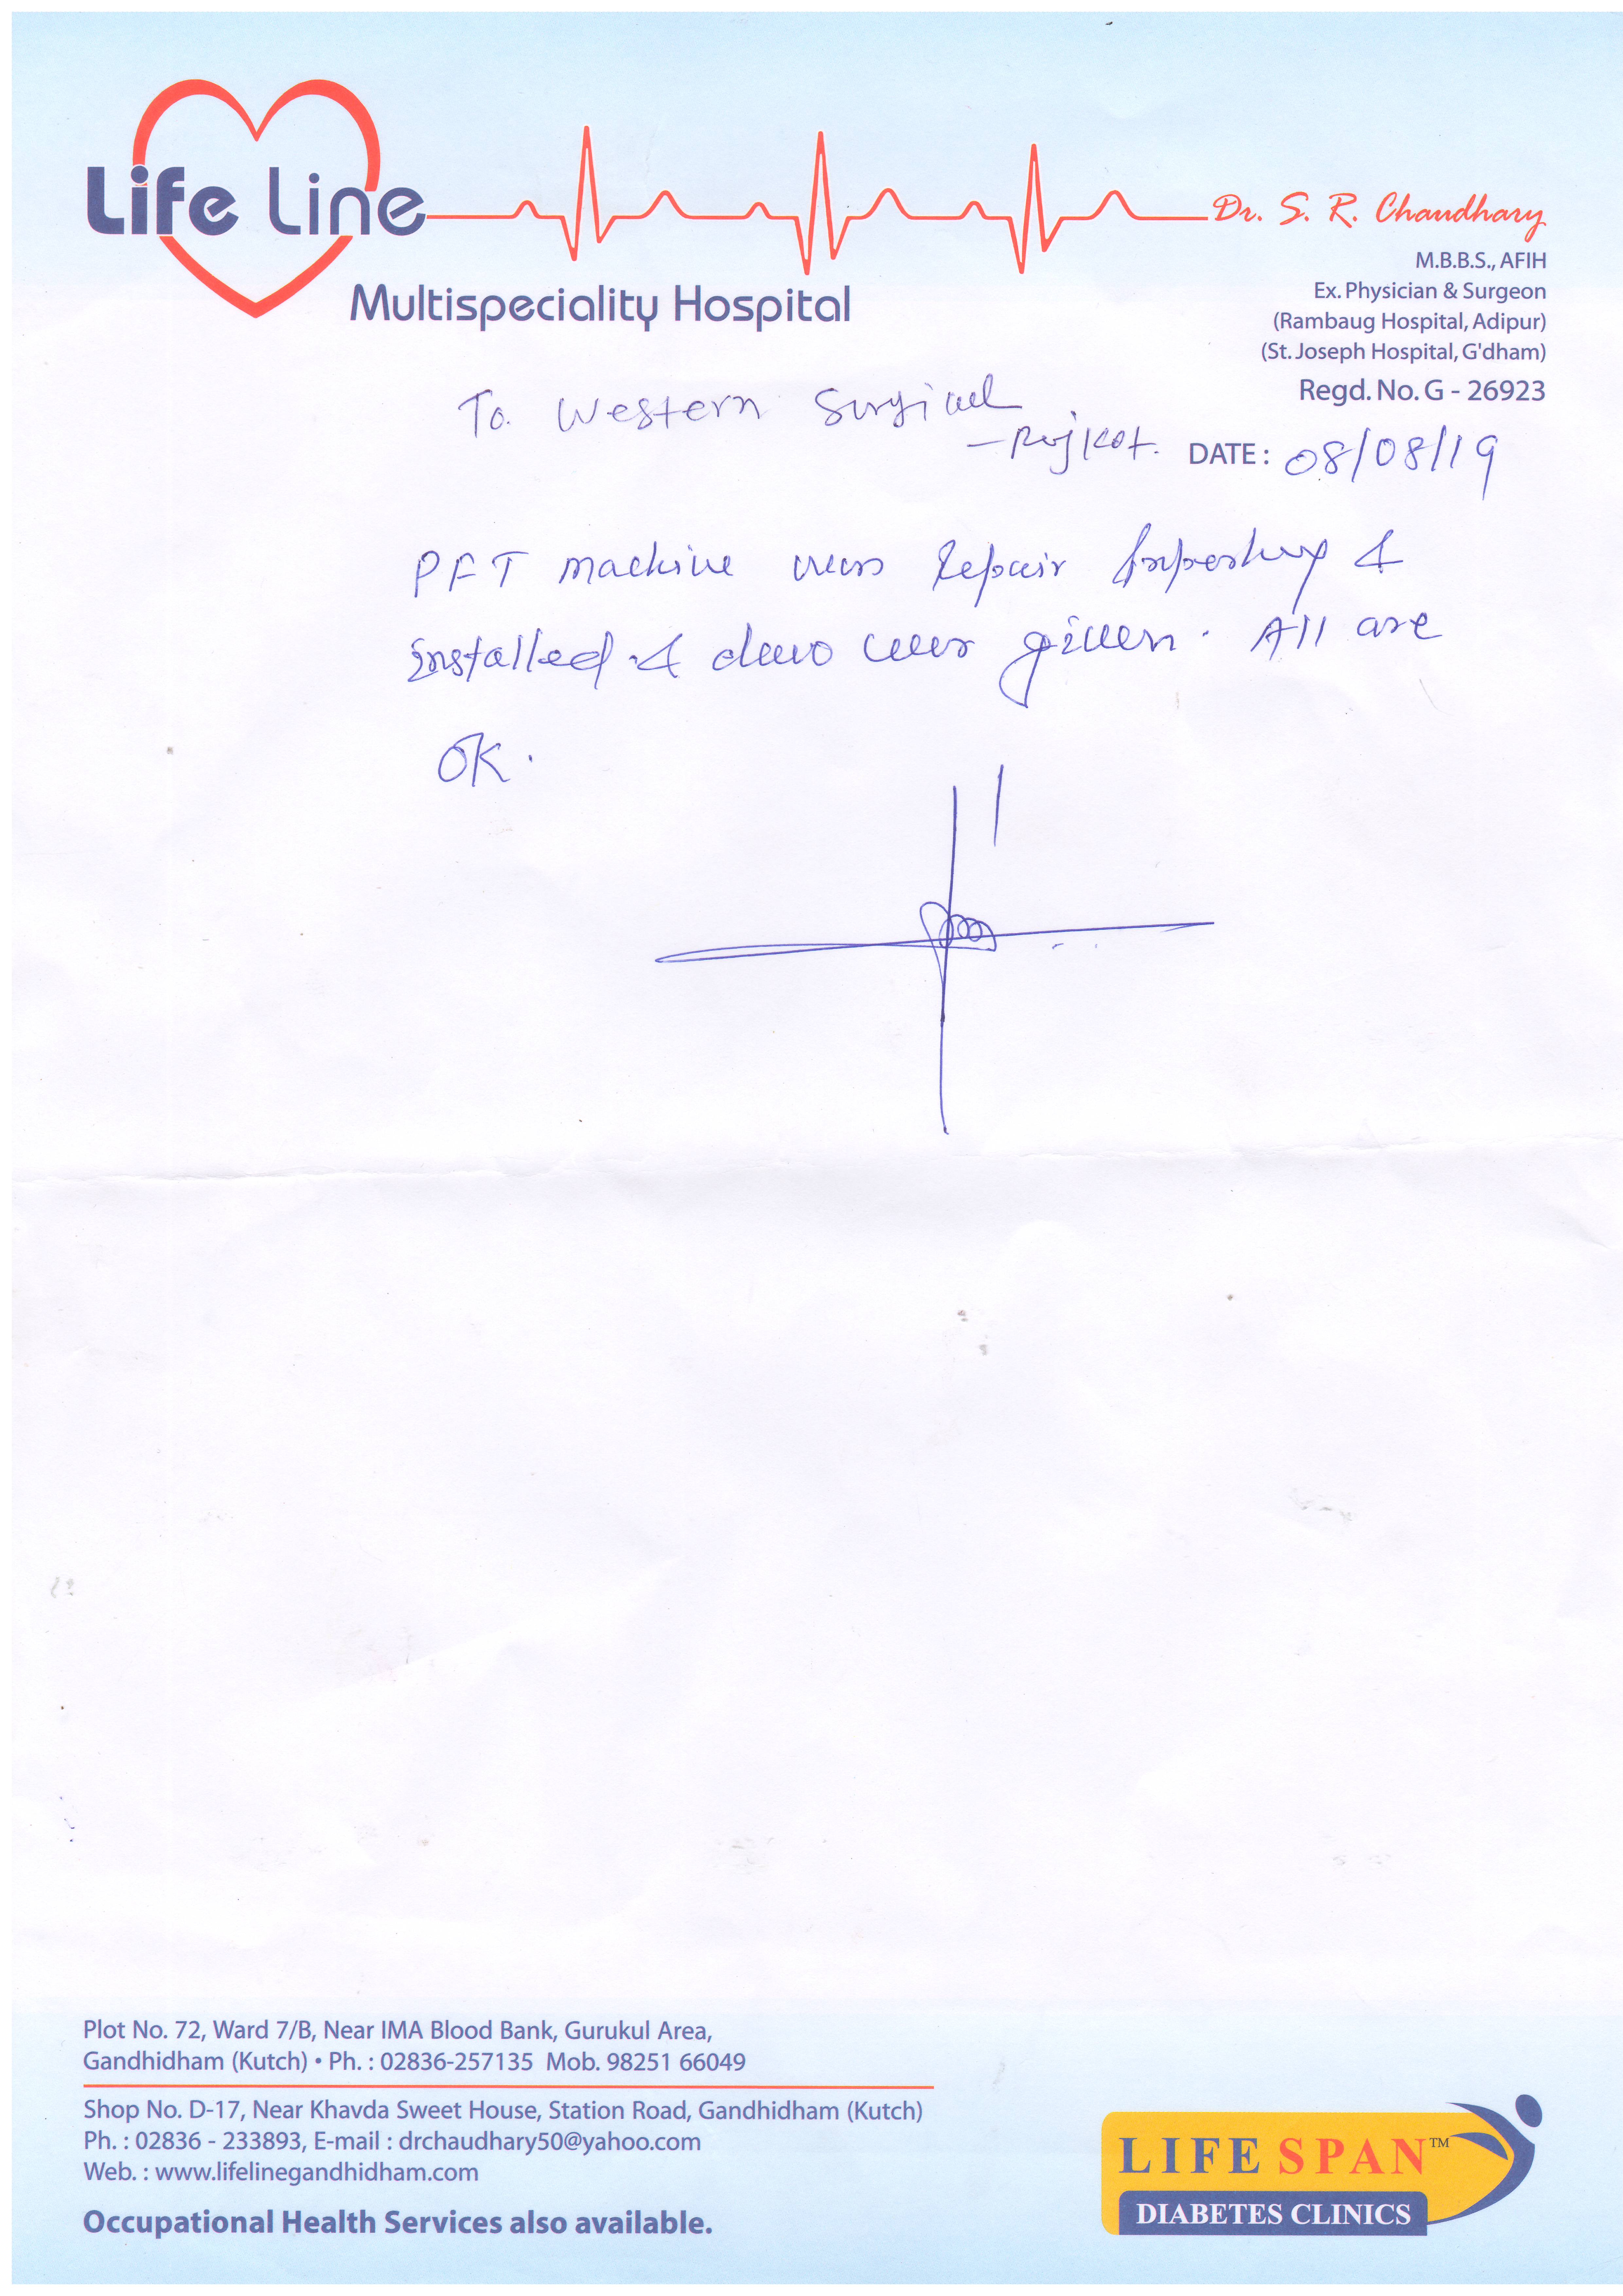 Life Line
Multispeciality Hospital
Dr. S. R. Chaudhary
M.B.B.S., AFIH
Ex. Physician & Surgeon
(Rambaug Hospital, Adipur)
(St. Joseph Hospital, G'dham)
Regd. No. G - 26923
To. Western Surgical
- Rajkot.
DATE : 08/08/19
PFT machine was Repair &
installed & demo was given. All are
OK.
Plot No. 72, Ward 7/B, Near IMA Blood Bank, Gurukul Area,
Gandhidham (Kutch) • Ph. : 02836-257135 Mob. 98251 66049
Shop No. D-17, Near Khavda Sweet House, Station Road, Gandhidham (Kutch)
Ph. : 02836 - 233893, E-mail : drchaudhary50@yahoo.com
Web. : www.lifelinegandhidham.com
Occupational Health Services also available.
LIFE SPAN™
DIABETES CLINICS